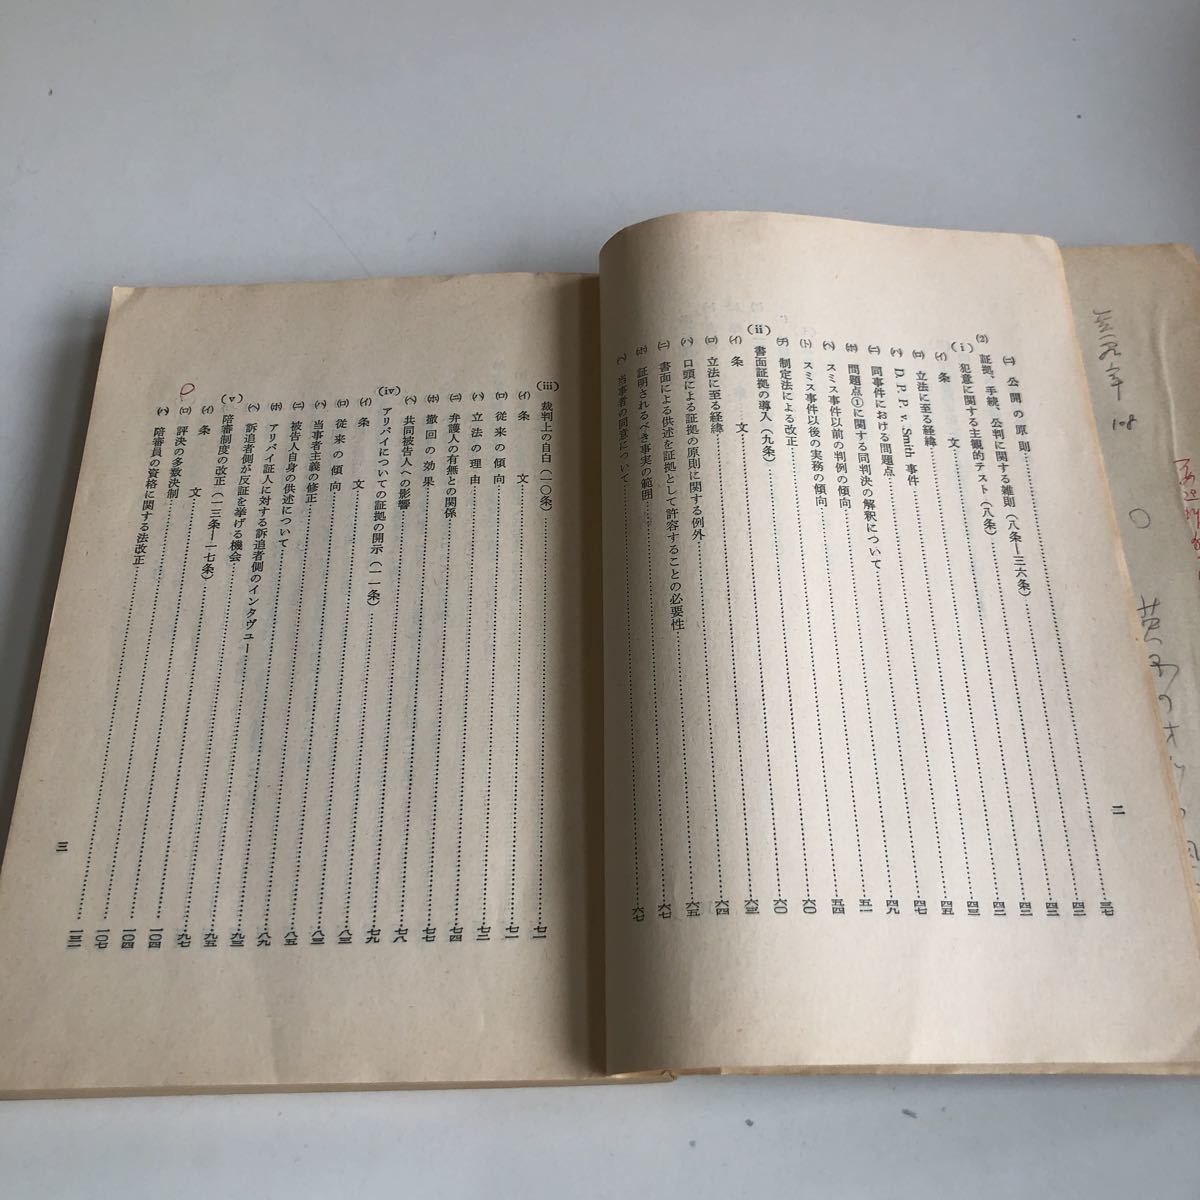 (ニ) 公開の原則……三七
(2) 証拠、手続、公判に関する雑則(八条―三六条)……四二
(i) 犯意に関する主観的テスト(八条)……四二
(イ) 条文……四二
(ロ) 立法に至る経緯……四二
(ハ) D.P.P. v. Smith 事件……四三
(ニ) 同事件における問題点……四五
(ホ) 問題点①に関する同判決の解釈について……四七
(ヘ) スミス事件以前の判例の傾向……四九
(ト) スミス事件以後の実務の傾向……五一
(チ) 制定法による改正……五四
(ii) 書面証拠の導入(九条)……六〇
(イ) 条文……六〇
(ロ) 立法に至る経緯……六三
(ハ) 口頭による証拠の原則に関する例外……六四
(ニ) 書面による供述を証拠として許容することの必要性……六五
(ホ) 証明されるべき事実の範囲……六七
(ヘ) 当事者の同意について……六七
二
(iii) 裁判上の自白(一〇条)……七一
(イ) 条文……七一
(ロ) 従来の傾向……七二
(ハ) 立法の理由……七四
(ニ) 弁護人の有無との関係……七七
(ホ) 撤回の効果……七八
(ヘ) 共同被告人への影響……七九
(iv) アリバイについての証拠の開示(一一条)……八三
(イ) 条文……八三
(ロ) 従来の傾向……八五
(ハ) 当事者主義の修正……八九
(ニ) 被告人自身の供述について……九三
(ホ) アリバイ証人に対する訴追者側のインタヴュー……九五
(ヘ) 訴追者側が反証を挙げる機会……九七
(v) 陪審制度の改正(一三条―一七条)……一〇四
(イ) 条文……一〇四
(ロ) 評決の多数決制……一〇七
(ハ) 陪審員の資格に関する法改正……一三二
三